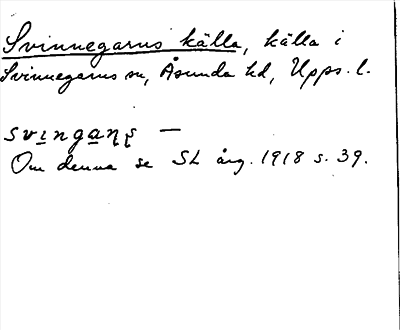 Svinnegarns källa, källa i
Svinnegarns sn, Åsunda hd, Upps. l.
svingaɳʂ —
Om denna se SL årg. 1918 s. 39.